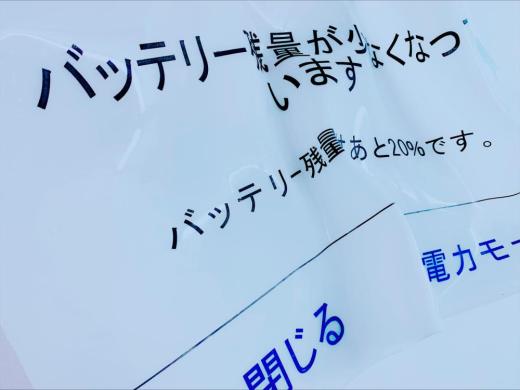 バッテリー残量が少なくなっ
います
バッテリー残量はあと20%です。
閉じる
電力モー